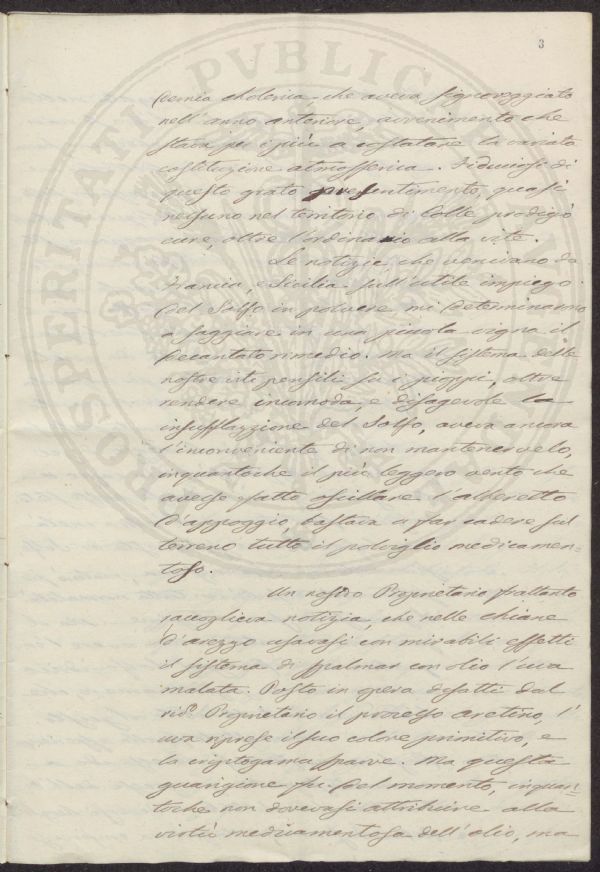 3
demia cholerica, che aveva signoreggiato
nell'anno anteriore, avvenimento che
stava per i più a costatare la variata
costituzione atmosferica. Fiduciosi di
questo grato presentimento, quasi
nessuno nel territorio di Colle prodigò
cure oltre l'ordinario alla vite.
Le notizie, che venivano da
Francia, e Sicilia sull'utile impiego
del Solfo in polvere mi determinarono
a saggiare in una piccola vigna il
decantato rimedio. Ma il sistema delle
nostre viti pensili su i pioppi, oltre
rendere incomoda, e disagevole la
insufflazzione del Solfo, aveva ancora
l'inconveniente di non mantenervelo,
inquantoche il più leggero vento che
avesse fatto oscillare l'alberetto
d'appoggio, bastava a far cadere sul
terreno tutto il polviglio medicamen-
toso.
Un nostro Proprietario frattanto
raccoglieva notizia, che nelle chiane
d'arezzo usavasi con mirabili effetti
il sistema di spalmar con olio l'uva
malata. Posto in opera difatti dal
rid.º Proprietario il processo aretino, l'
uva riprese il suo colore primitivo, e
la criptogama sparve. Ma questa
guarigione fu del momento, inquan-
toche non dovevasi attribuire alla
virtù medicamentosa dell'olio, ma
PROSPERITATI PVBLICAE